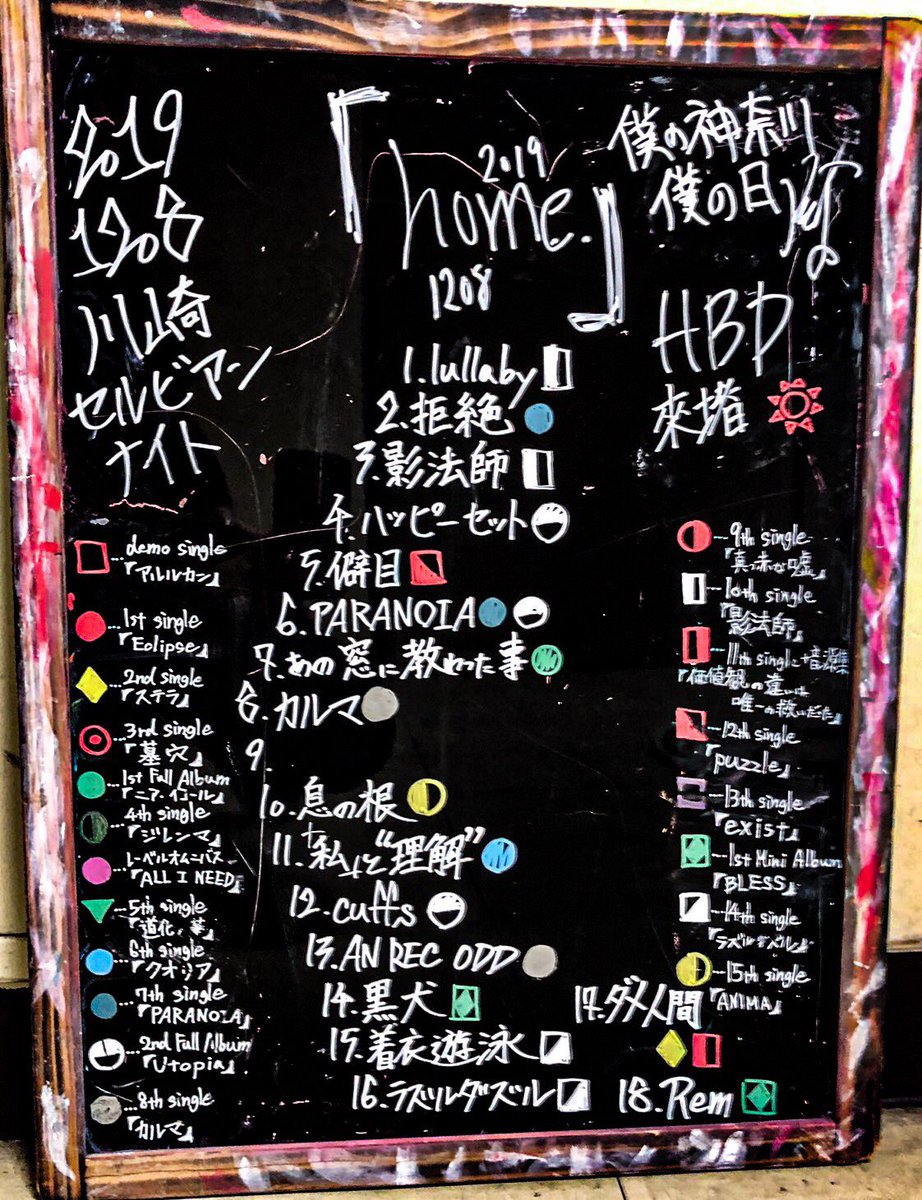 2019
1208
川崎
セルビアン
ナイト
『home.』
2019
1208
僕の神奈川
僕の日
HBD
來堵
1. lullaby
2. 拒絶
3. 影法師
4. ハッピーセット
5. 僻目
6. PARANOIA
7. あの窓に教わった事
8. カルマ
9.
10. 息の根
11. 「私」と“理解”
12. cuffs
13. AN REC ODD
14. 黒犬
15. 着衣遊泳
16. ラズルダズル
17. ダメ人間
18. Rem
…demo single
『アルルカン』
…1st single
『Eclipse』
…2nd single
『ステラ』
…3rd single
『墓穴』
…1st Full Album
『ニア・イコール』
…4th single
『ジレンマ』
…レーベルオムニバス
『ALL I NEED』
…5th single
『道化ノ華』
…6th single
『クオリア』
…7th single
『PARANOIA』
…2nd Full Album
『Utopia』
…8th single
『カルマ』
…9th single
『真っ赤な嘘』
…10th single
『影法師』
…11th single+音源集
『価値観の違いは
唯一の救いだった』
…12th single
『puzzle』
…13th single
『exist』
…1st Mini Album
『BLESS』
…14th single
『ラズルダズル』
…15th single
『ANIMA』